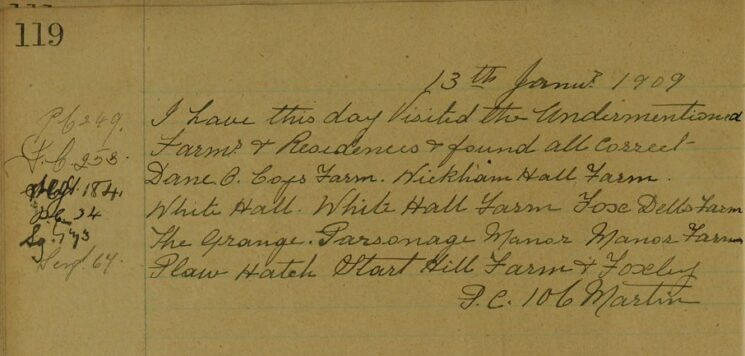 119
13th Janur 1909
P.C 249.
I have this day Visited the Undermentioned
P.C. 253.
Farms & Residences & found all Correct
184.
Dane O. Coys Farm. Wickham Hall Farm.
P.C. 34
White Hall. White Hall Farm Foxe Dells Farm
Sg. 173
The Grange. Parsonage Manor Manor Farm
Serg 64.
Plaw Hatch Start Hill Farm & Foxley
P.C. 106 Martin